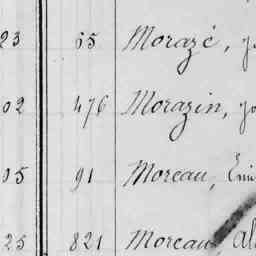 23 65 Morazé,
02 476 Morazin,
05 91 Moreau, Emi
25 821 Moreau, Al